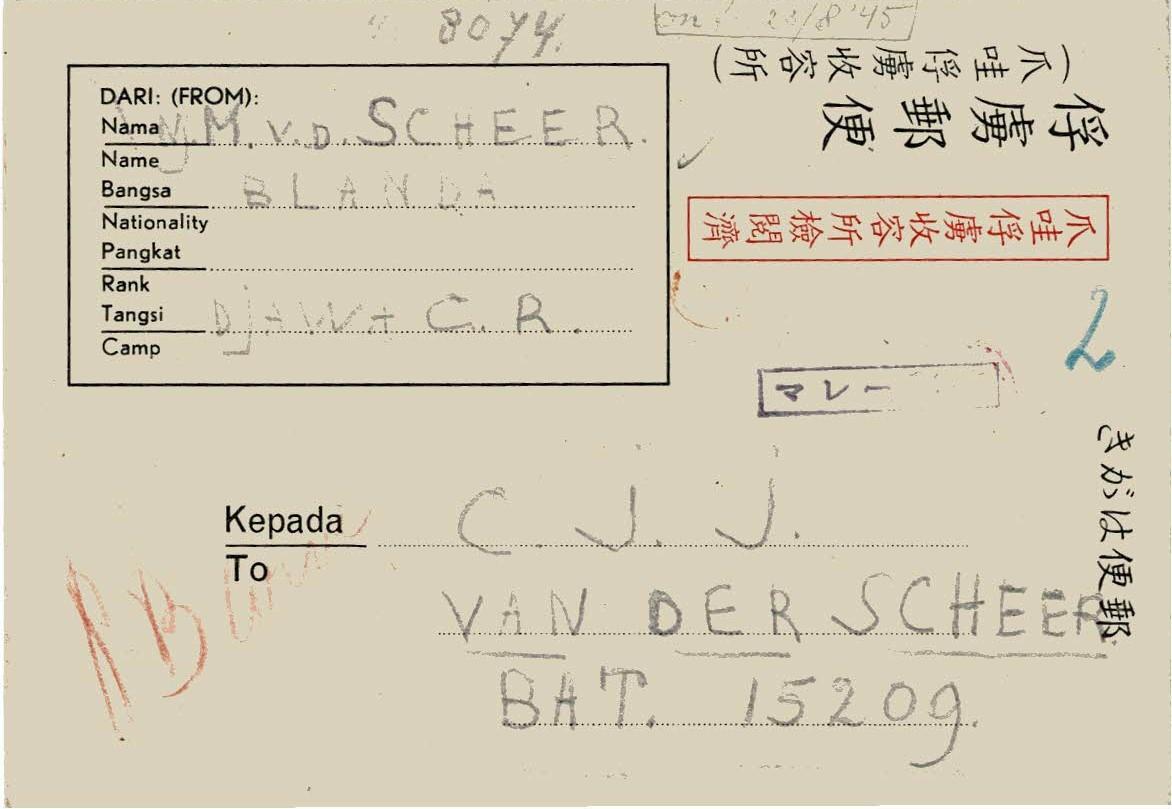 8074.
'45
(爪哇俘虜收容所)
俘虜郵便
爪哇俘虜收容所檢閱濟
DARI: (FROM):
Nama M. v.d. SCHEER.
Name
Bangsa BLANDA
Nationality
Pangkat
Rank
Tangsi DJAWA C. R.
Camp
2
マレー
郵便はがき
Kepada C. J. J.
To
VAN DER SCHEER
BAT. 15209.